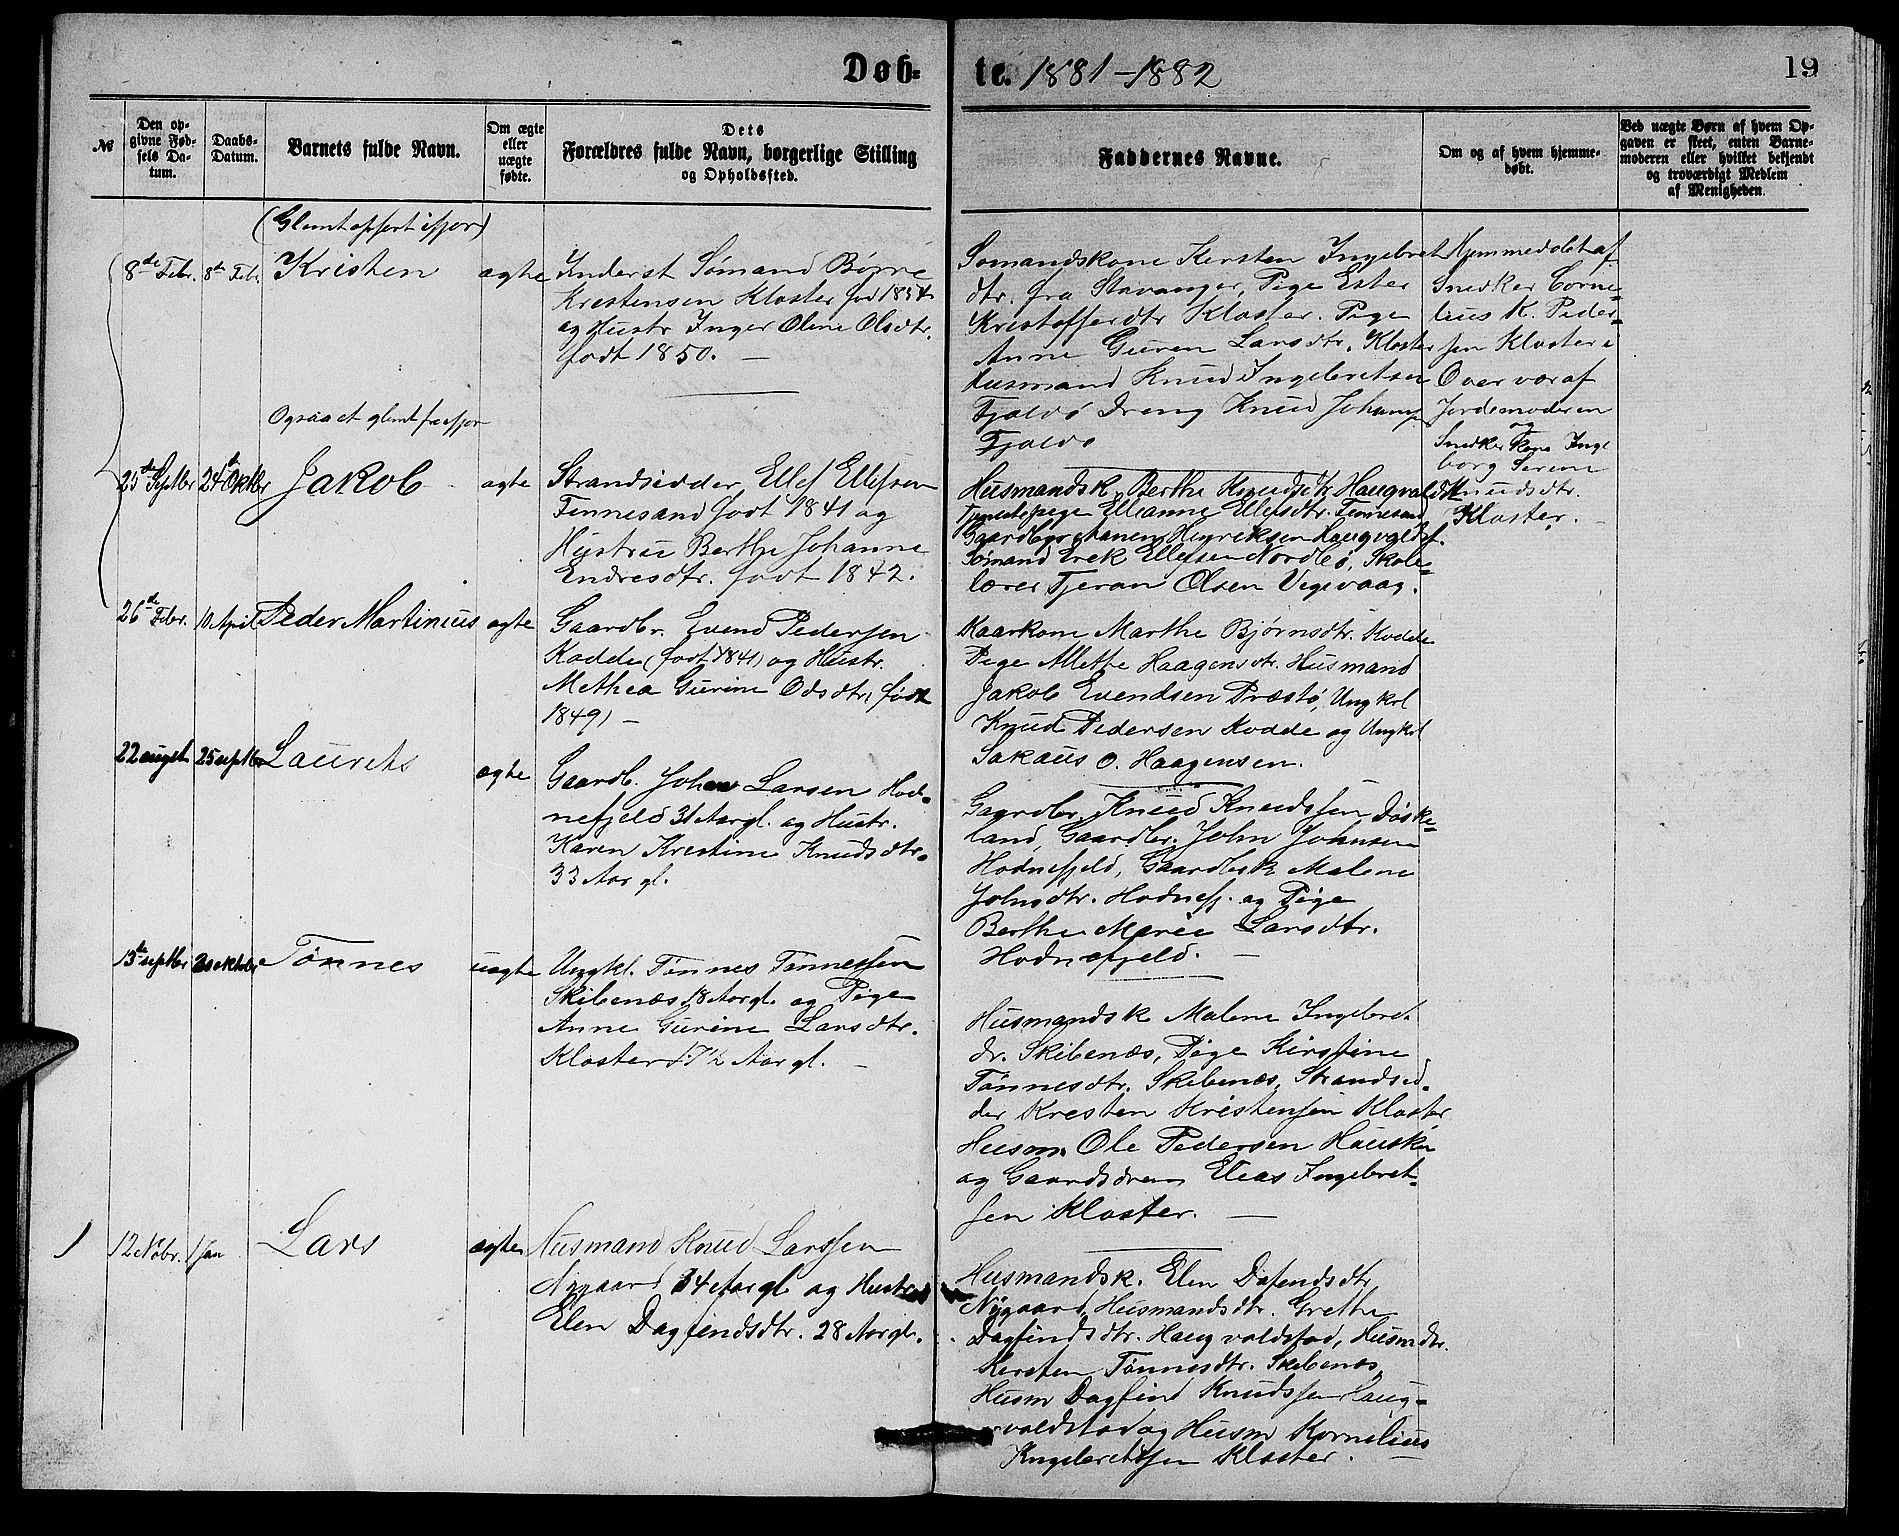 Døb-
te. 1881-1882
19
№
Den op-
givne Fød-
sels Da-
tum.
Daabs-
Datum.
Barnets fulde Navn.
Om ægte
eller
uægte
fødte.
Dets
Forældres fulde Navn, borgerlige Stilling
og Opholdssted.
Faddernes Navne.
Om og af hvem hjemme-
døbt.
Ved uægte Børn af hvem Op-
gaven er skeet, enten Barne-
moderen eller hvilket bekjendt
og troværdigt Medlem
af Menigheden.
(Glemt opført ifjor)
8de Febr. 8de Feb. Kristen ægte
Inderst Sømand Børre
Krestensen Kloster fød 1854
og Hustr. Inger Oline Olsdtr.
født 1850. —
Sømandskone Kersten Ingebret
dtr. fra Stavanger, Pige Ester
Kristofferdtr Kloster. Pige
Anne Guren Larsdtr. Kloster
Husmand Knud Ingebretsen
Fjeldø Dreng Knud Johannes
Fjeldø
Hjemmedøbt af
Snedker Corne-
lius K. Peder-
sen Kloster i
Overvær af
Jordemoderen
og
Snedker Kone Inge
borg Serine
Knudsdtr.
Kloster.
Ogsaa et glemt fra ifjor
25de Septbr 24de Oktbr Jakob ægte
Strandsidder Ellef Ellefsen
Fennesand født 1841 og
Hustrue Berthe Johanne
Endresdtr. født 1842.
Husmandsk. Berthe Knudsdtr. Haugvaldst
Tjenestepige Ellianne Ellefsdtr. Fennesand
Gaardbr Henriksen Haugvaldst.
Sømand Erek Ellefsen Nordbø, Skole-
lærer Tjeran Olsen Vigevaag.
26de Febr. 10 April Peder Martinius ægte
Gaardbr. Evend Pedersen
Kodde (født 1841) og Hustr.
Methea Gurine Odsdtr, født
1849) —
Kaarkone Marthe Bjørnsdtr. Kodde
Pige Mette Haagensdtr. Husmand
Jakob Evendsen Præstø, Ungkrl
Knud Pedersen Kodde og Ungkrl
Sakaus O. Haagensen.
22 augst 25 septbr Laurits ægte
Gaardb. Johan Larsen Hod-
nefjeld 31 Aar gl. og Hustr.
Karen Kristine Knudsdtr.
33 Aar gl.
Gaardbr. Knud Knudssen Døske-
land, Gaardbr. John Johnsen
Hodnefjeld, Gaardbsk Malene
Johnsdtr. Hodnefj. og Pige
Berthe Marie Larsdtr.
Hodnefjeld. —
13de septbr oktobr Tønnes uægte
Ungkl. Tønnes Tønnessen
Skibenæs 18 Aar gl. og Pige
Anne Gurine Larsdtr.
Kloster 17½ Aar gl. —
Husmandsk Malene Ingebret
dr. Skibenæs, Pige Kirstine
Tønnesdtr. Skibenæs, Strandsid-
der Kresten Kristensen Kloster
Husm. Ole Pedersen Hausken
og Gaardsdreng Elias Ingebret-
sen Kloster. —
1 12 Nobr. 1 Jan Lars ægte
Husmand Knud Larssen
Nygaard 34 Aar gl og Hustr
Elen Dagfindsdtr. 28 Aar gl.
Husmandsk. Elen Dafendsdtr
Nygaard, Husmandsdtr. Grethe
Dagfindsdtr. Haugvaldstad, Husmdtr.
Kersten Tønnesdtr. Skibenæs
Husm Dagfind Knudssen Haug-
valdstad og Husm Kornelius
Ingebretssen Kloster. —